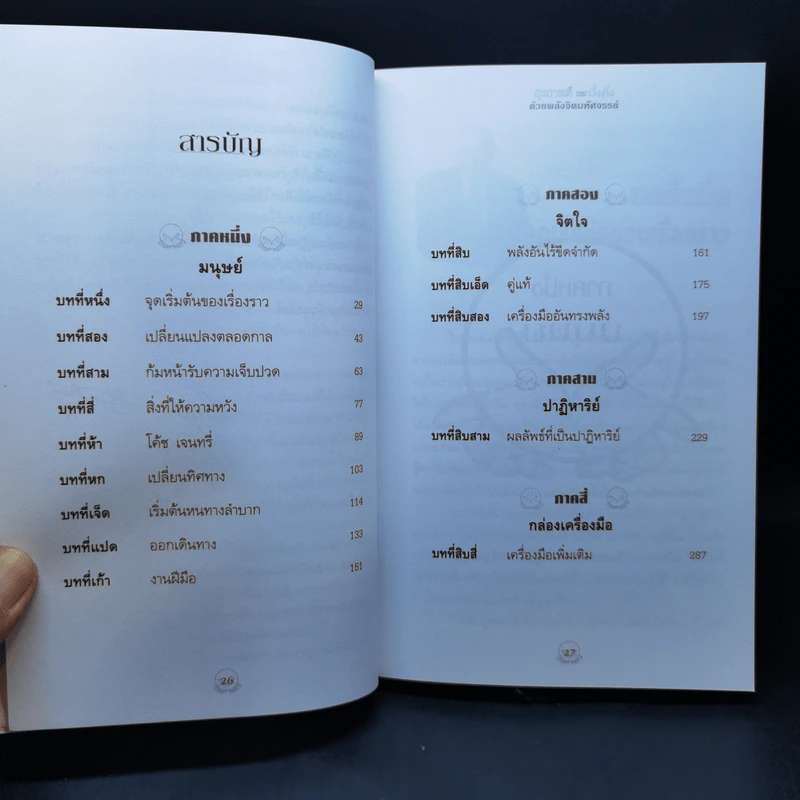 สารบัญ
ภาคหนึ่ง
มนุษย์
บทที่หนึ่ง จุดเริ่มต้นของเรื่องราว 29
บทที่สอง เปลี่ยนแปลงตลอดกาล 43
บทที่สาม ก้มหน้ารับความเจ็บปวด 63
บทที่สี่ สิ่งที่ให้ความหวัง 77
บทที่ห้า โค้ช เจนทรี่ 89
บทที่หก เปลี่ยนทิศทาง 103
บทที่เจ็ด เริ่มต้นหนทางลำบาก 114
บทที่แปด ออกเดินทาง 133
บทที่เก้า งานฝีมือ 151
26
สุขภาพดี และมั่งคั่ง
ด้วยพลังจิตมหัศจรรย์
ภาคสอง
จิตใจ
บทที่สิบ พลังอันไร้ขีดจำกัด 161
บทที่สิบเอ็ด คู่แท้ 175
บทที่สิบสอง เครื่องมืออันทรงพลัง 197
ภาคสาม
ปาฏิหาริย์
บทที่สิบสาม ผลลัพธ์ที่เป็นปาฏิหาริย์ 229
ภาคสี่
กล่องเครื่องมือ
บทที่สิบสี่ เครื่องมือเพิ่มเติม 287
27